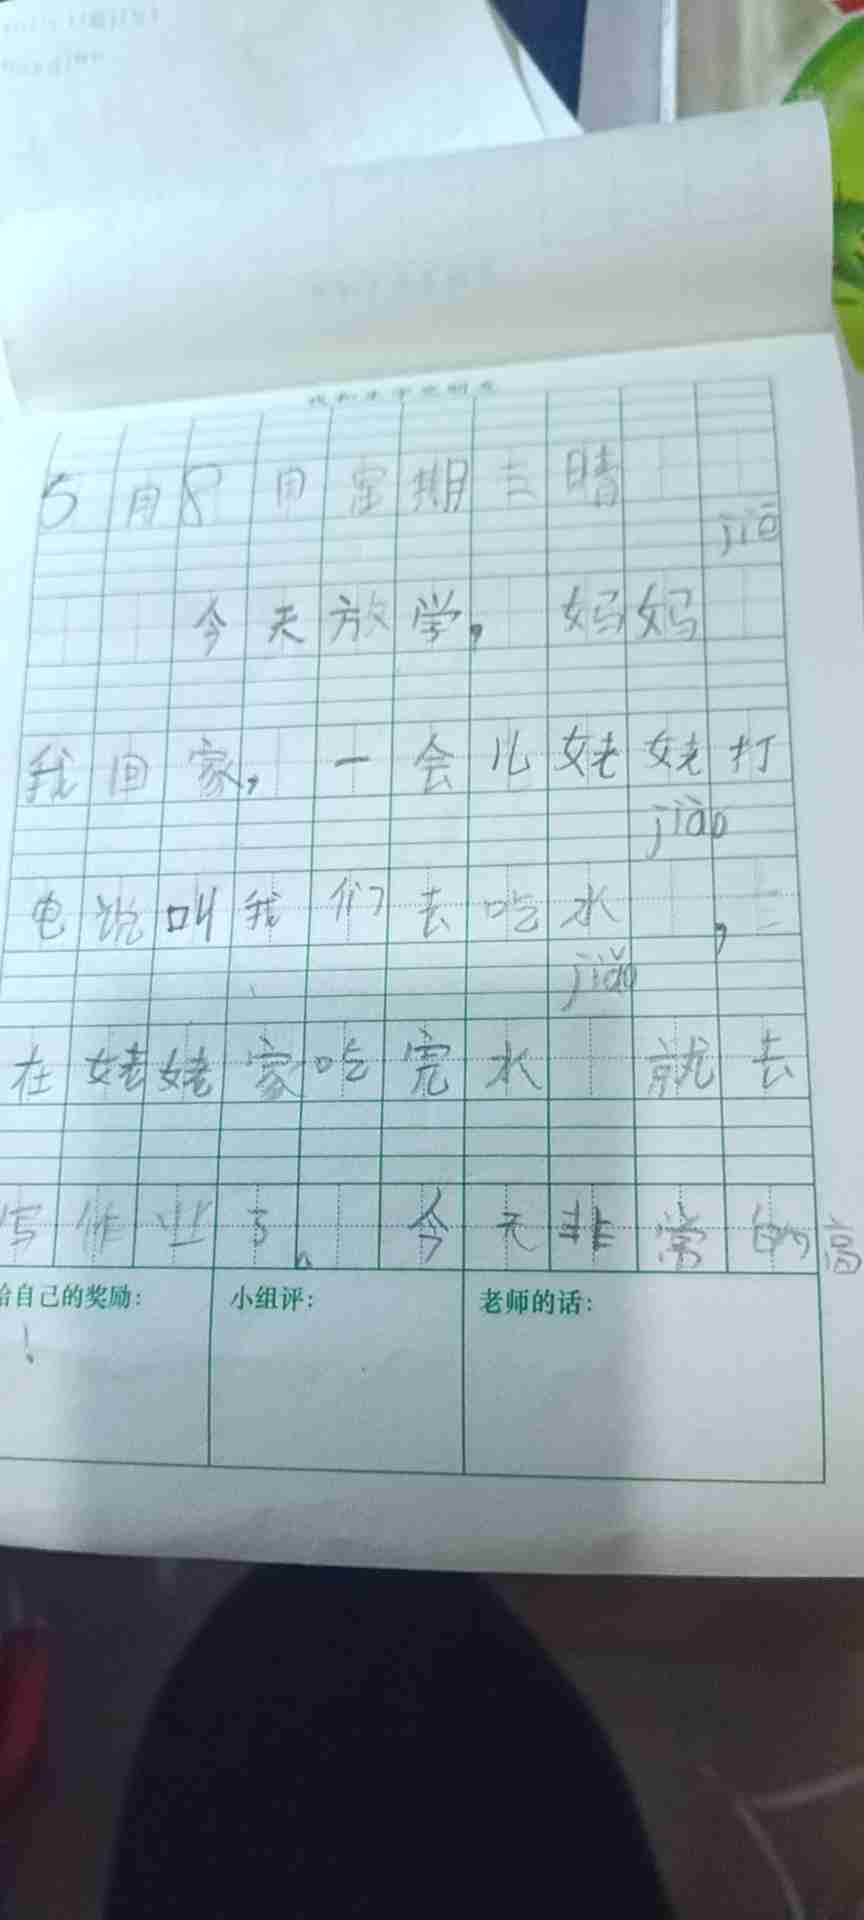 5月8日星期三晴
jiē
今天放学，妈妈
我回家，一会儿姥姥打
jiǎo
电说叫我们去吃水，
jiǎo
在姥姥家吃完水 就去
写作业了。今天非常的高
给自己的奖励：
小组评：
老师的话：
！